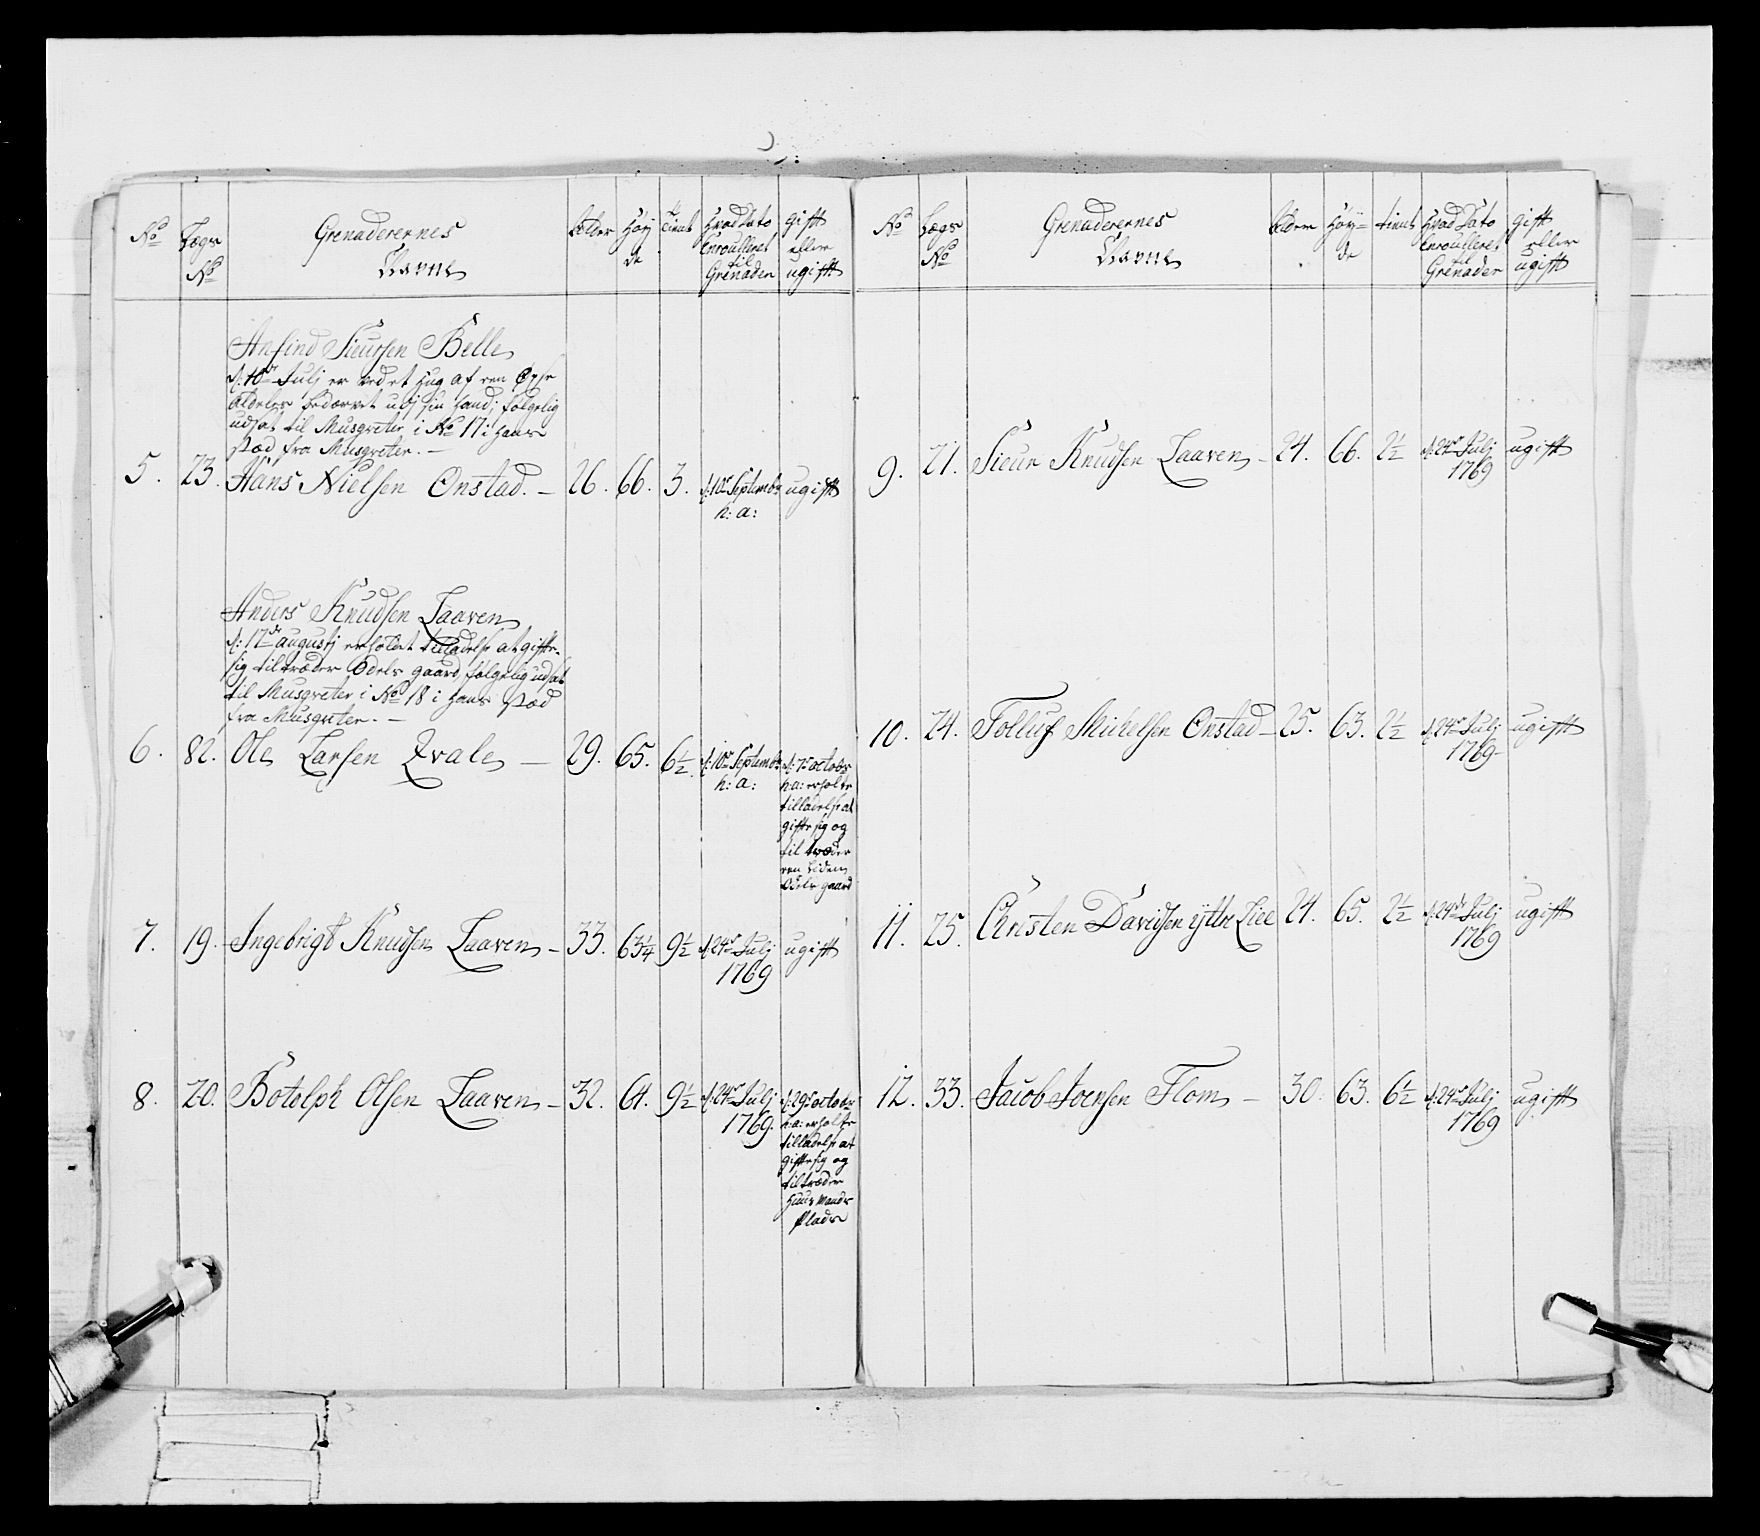 No
Lægs
No
Grenaderernes
Navne
Alder
Høy
de
Tient
Hvad Dato
Enroulleret
til
Grenader
Gift
eller
ugift
Anfind Siursen Belle
d: 10de Julj er ved et Hug af een Øxe
aldeles bedærvet udj sin Haand, følgelig
udsat til Musqveter i No 17 i Hans
stæd fra Musqveter. —
5. 23. Hans Nielsen Onstad. — 26. 66. 3. d: 10de Septembr ugift
h: a:
Anders Knudsen Laaven
d: 17de augustj erholdet tilladelse at gifte
sig tiltræder Odels gaard, følgelig udsat
til Musqveter i No 18 i Hans stæd
fra Musqveter. —
6. 82. Ole Larsen Qvale — 29. 65. 6½. d: 10de Septembr
h: a:
d: 7de octobr
h: a: erholdte
tilladelse at
gifte sig og
til træder
een liden
Odels gaard
7. 19. Ingebrigt Knudsen Laaven — 33. 63¼ 9½ d: 24de Julj ugift
1769
8. 20. Botolph Olsen Laaven — 32. 64. 9½ d: 24de Julj
1769.
d: 29de octobr
h: a: erholdte
tilladelse at
gifte sig og
tiltræder
Huus Mands
Plads
No
Lægs
No
Grenaderernes
Navne
Alder
Høy=
de
tient
Hvad Dato
Enroulleret
til
Grenader
Gift
eller
ugift
9. 21. Siur Knudsen Laaven — 24. 66. 2½ d: 24de Julj ugift
1769
10. 24. Tolluf Michelsen Onstad — 25. 63. 2½ d: 24de Julj ugift
1769
11. 25. Christen Davidsen ytre Liee 24. 65. 2½ d: 24de Julj ugift
1769
12. 33. Jacob Joensen Flom — 30. 63. 6½ d: 24de Julj ugift
1769